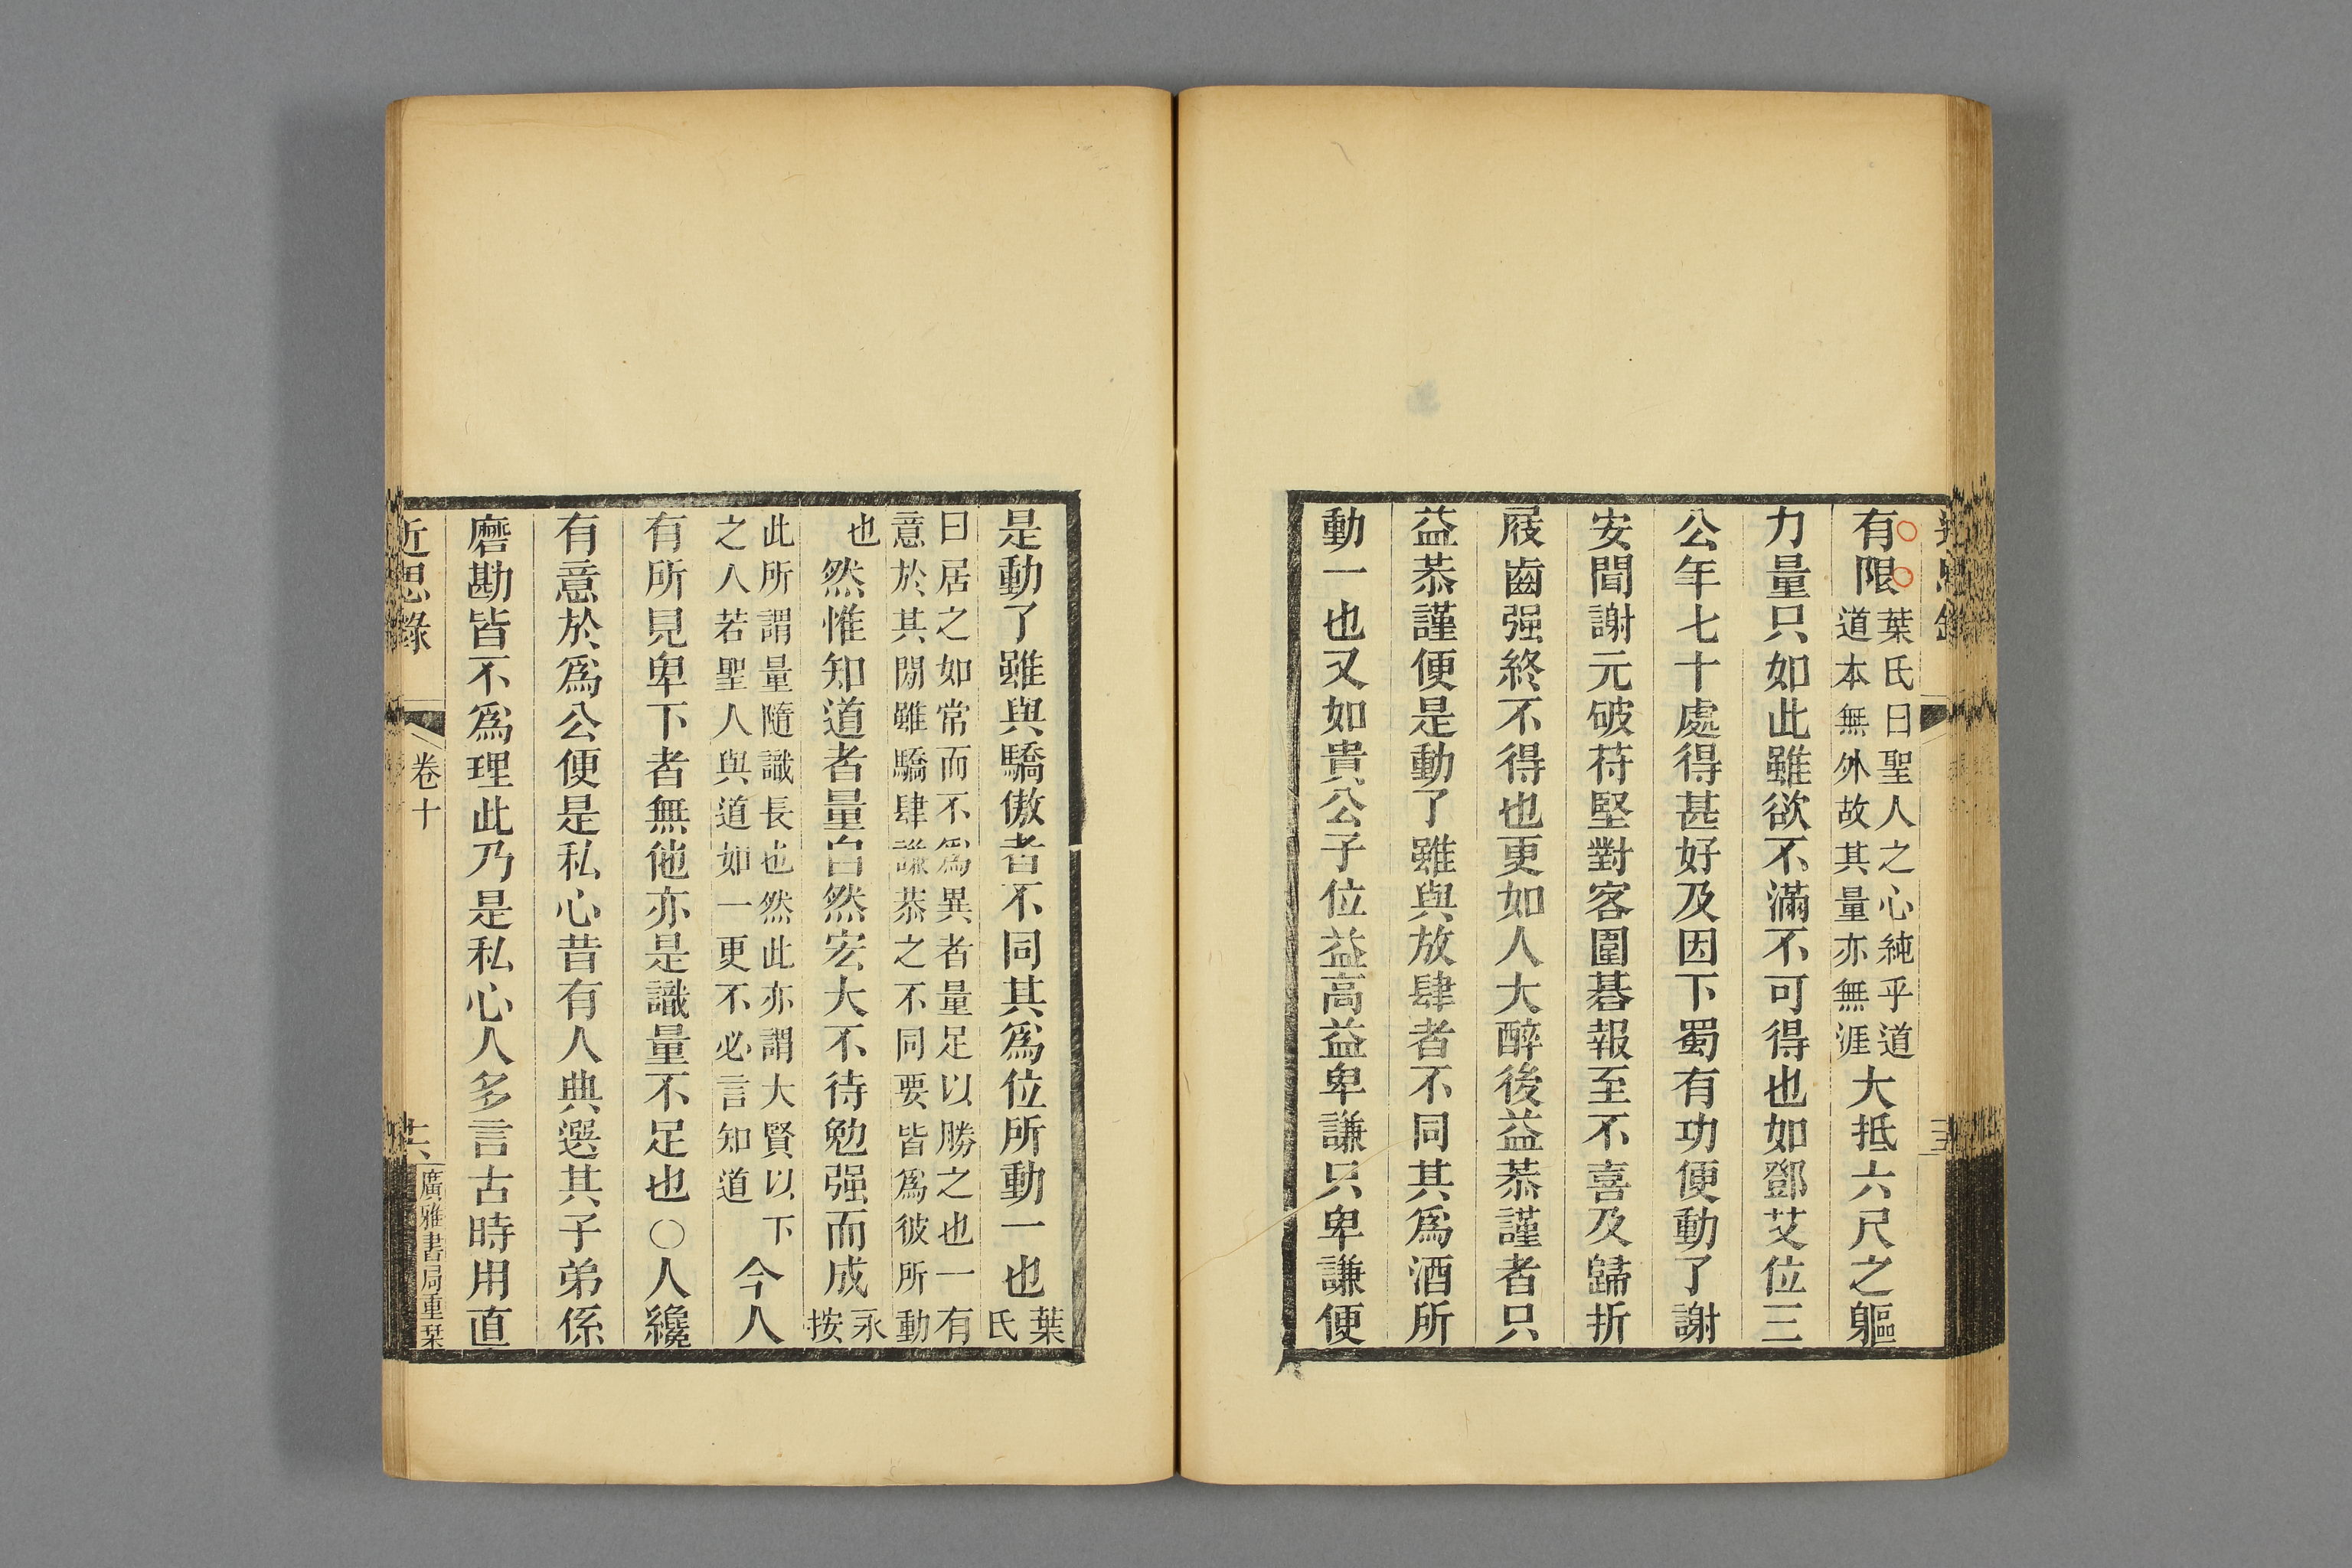 有限葉氏曰聖人之心純乎道道本無外故其量亦無涯大抵六尺之軀
力量只如此雖欲不滿不可得也如鄧艾位三
公年七十處得甚好及因下蜀有功便動了謝
安聞謝元破苻堅對客圍碁報至不喜及歸折
屐齒强終不得也更如人大醉後益恭謹者只
益恭謹便是動了雖與放肆者不同其爲酒所
動一也又如貴公子位益高益卑謙只卑謙便
是動了雖與驕傲者不同其爲位所動一也葉氏
曰居之如常而不爲異者量足以勝之也一有
意於其閒雖驕肆謙恭之不同要皆爲彼所動
也然惟知道者量自然宏大不待勉强而成永按
此所謂量隨識長也然此亦謂大賢以下
之人若聖人與道如一更不必言知道
今人
有所見卑下者無他亦是識量不足也○人纔
有意於爲公便是私心昔有人典選其子弟係
磨勘皆不爲理此乃是私心人多言古時用直
近思錄
卷十
廣雅書局重栞